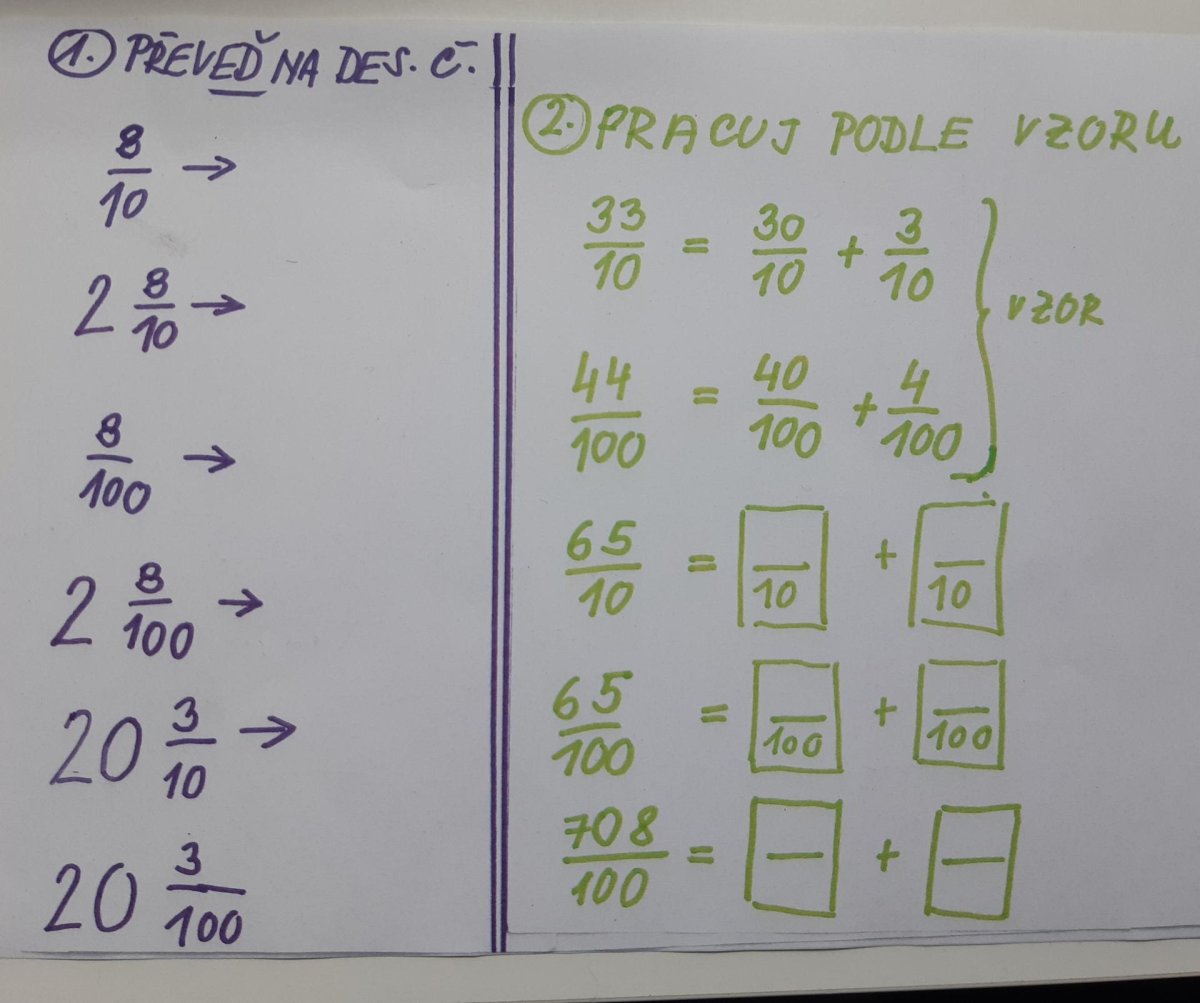 1. PŘEVEĎ NA DES. Č.
8/10 →
2 8/10 →
8/100 →
2 8/100 →
20 3/10 →
20 3/100
2. PRACUJ PODLE VZORU
33/10 = 30/10 + 3/10
44/100 = 40/100 + 4/100
VZOR
65/10 = /10 + /10
65/100 = /100 + /100
708/100 = — + —